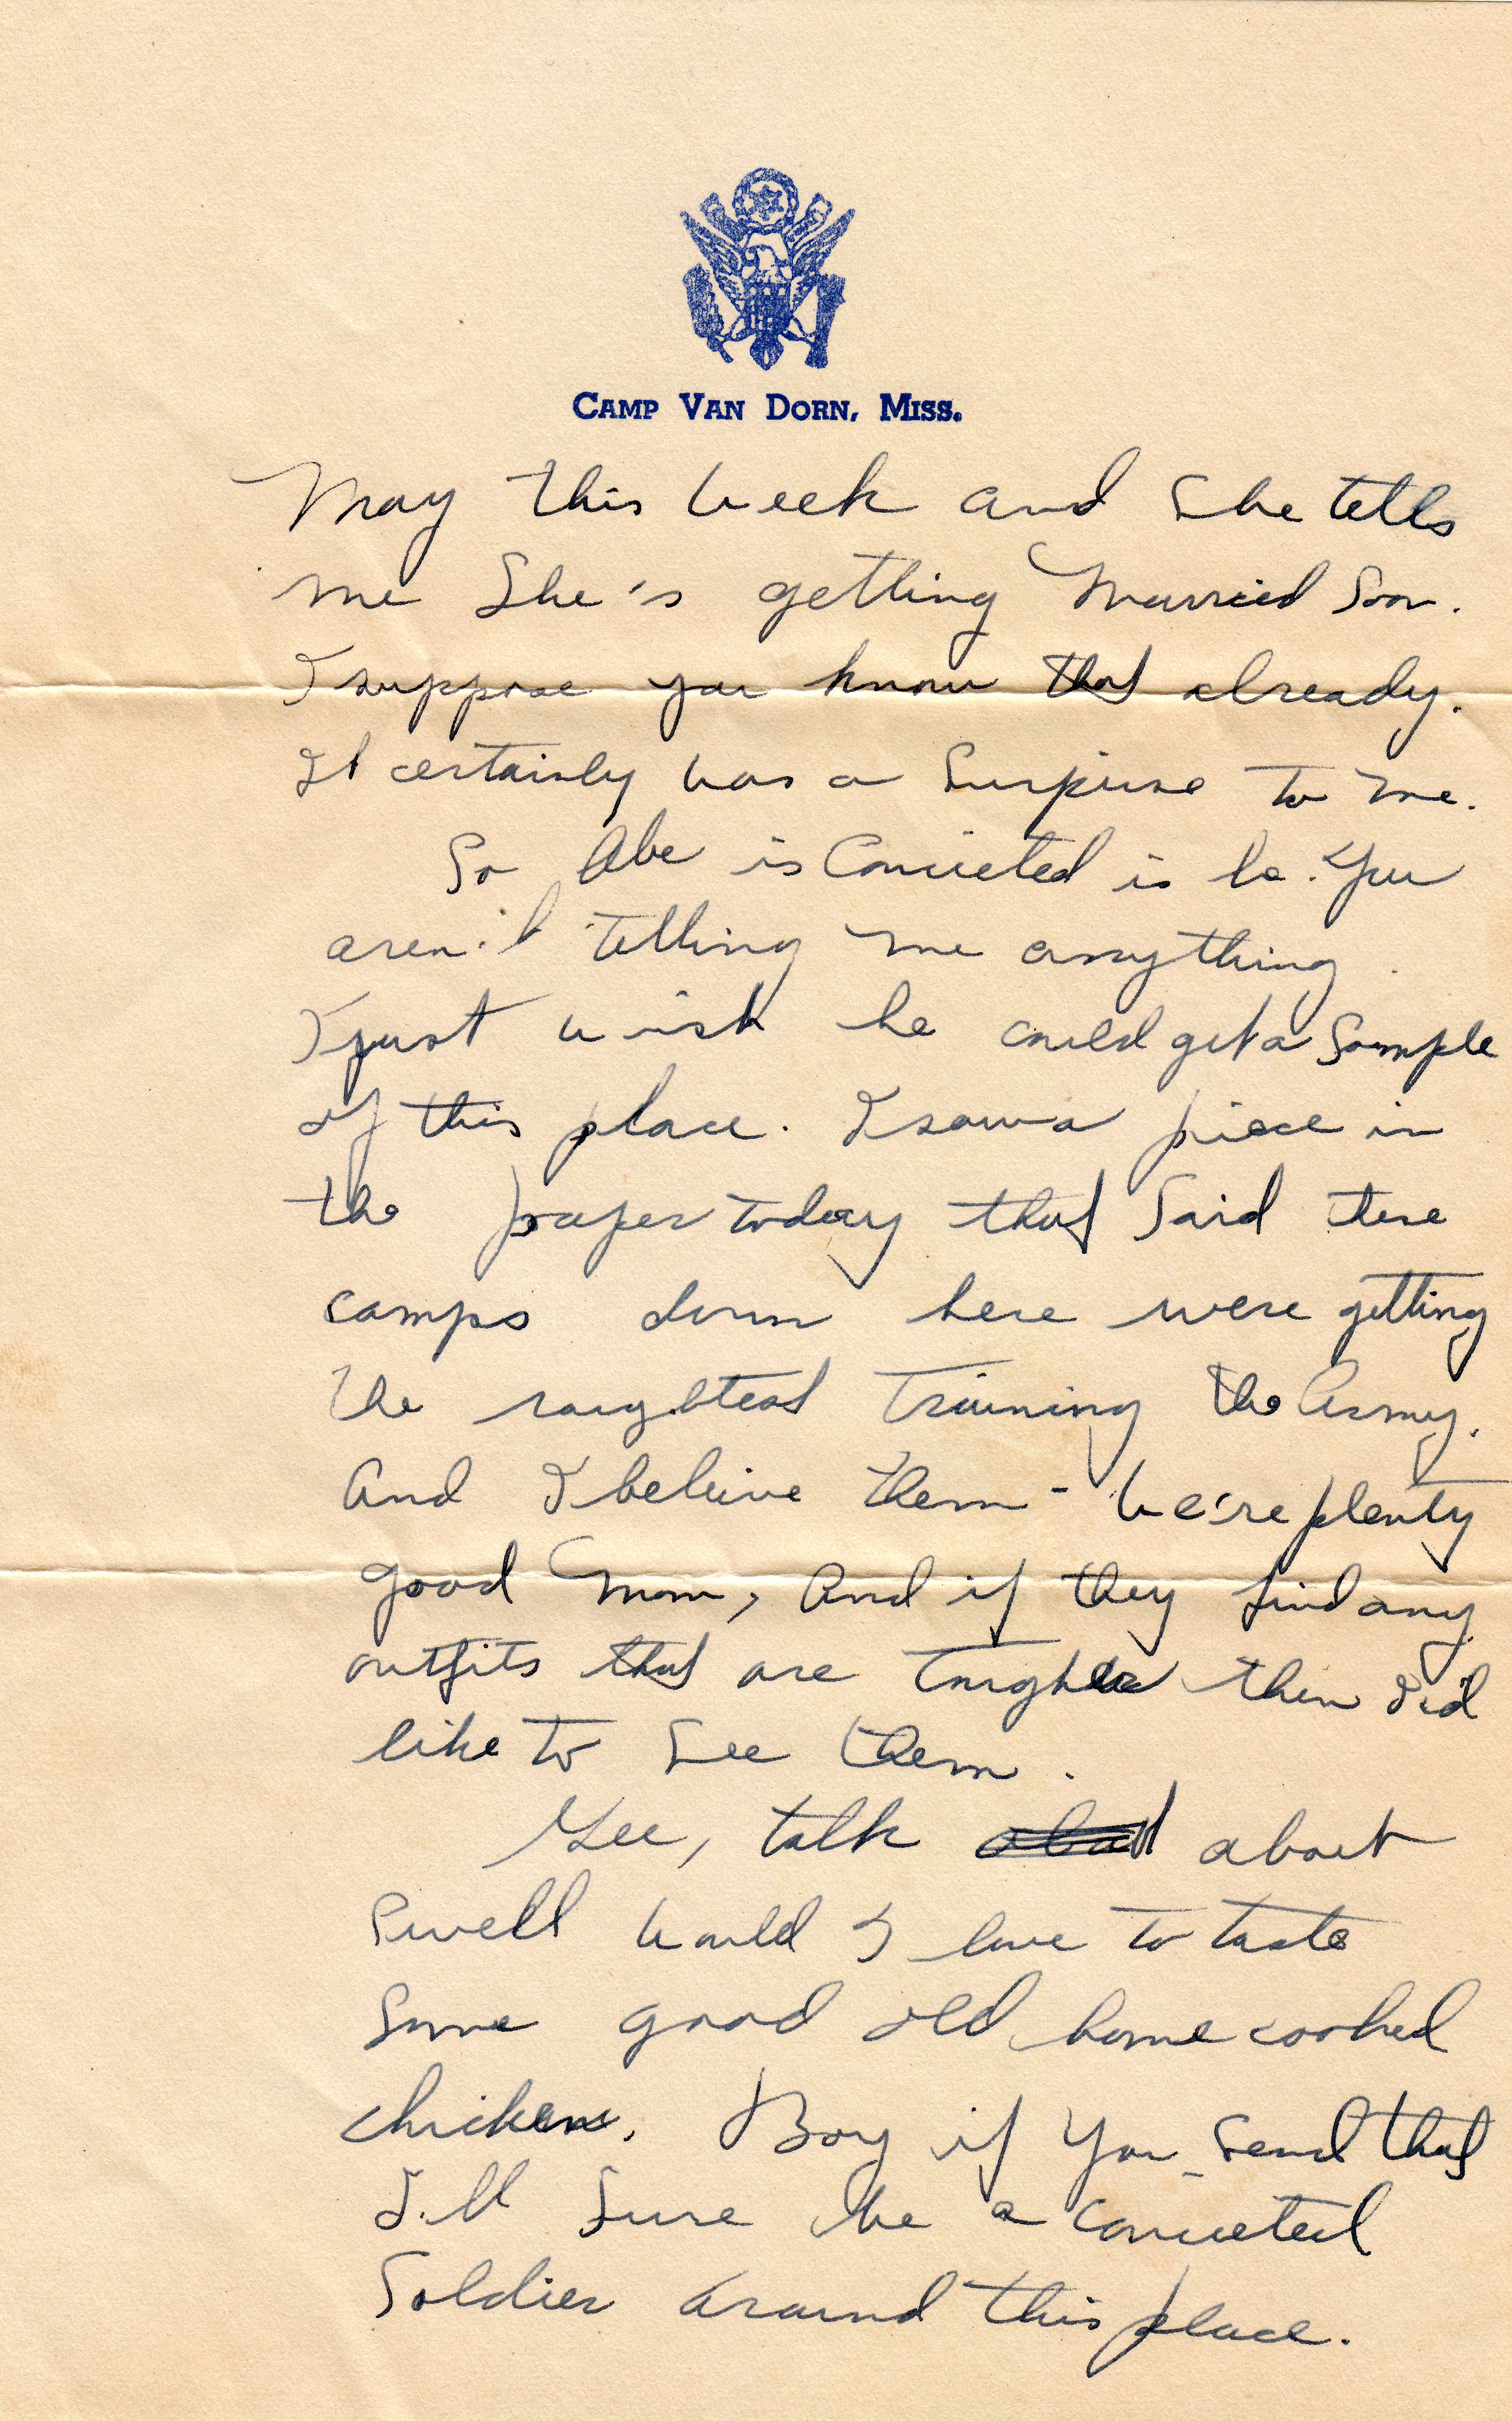 CAMP VAN DORN, MISS.
May this week and she tells
me She's getting Married Soon.
I suppose you know that already.
It certainly was a Surpirse to me.
So Abe is Conceited is he. You
aren't telling me anything.
I just wish he could get a Sample
of this place. I saw a piece in
the paper today that Said there
camps down here were getting
the roughtest Training the Army.
And I beleive them - We're plenty
good Mom, And if they find any
outfits that are tougher then I'd
like to See them.
Gee, talk about
Swell would I love to taste
Some good old home cooked
chicken. Boy if You Send that
I'll Sure be a conceited
Soldier around this place.